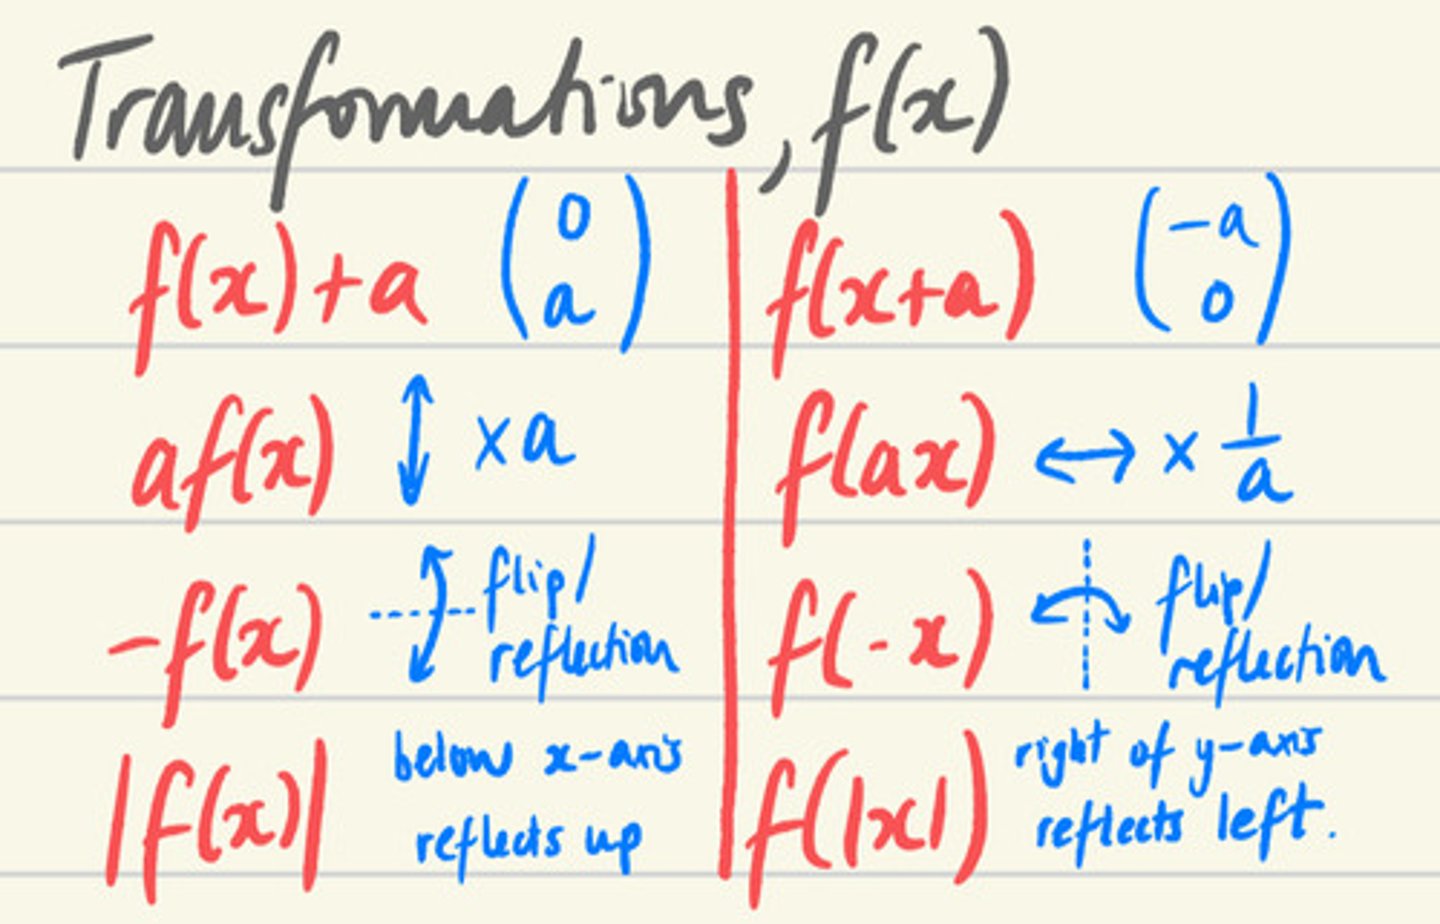 Transformations, f(x)
f(x)+a (0 a)
f(x+a) (-a 0)
af(x) ↕ ×a
f(ax) ↔ × 1/a
-f(x) flip/
reflection
f(-x) flip/
reflection
|f(x)| below x-axis
reflects up
f(|x|) right of y-axis
reflects left.